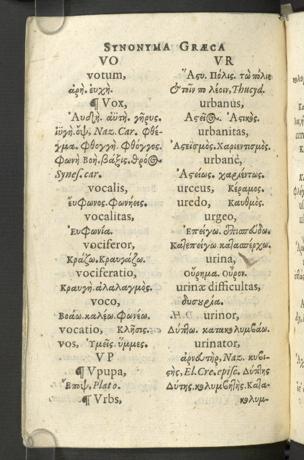 SYNONYMA GRÆCA
VO
votum,
ἀρή. εὐχή.
¶ Vox,
Αὐδή. ἀϋτή. γῆρυς.
ἰϋγή. ὄψ. Naz. Car. Φθέ-
γμα. Φθογγή. Φθόγγος.
Φωνή. Βοή. βάξις. θρόος.
Synes. car.
vocalis,
εὔφωνος. Φωνήεις.
vocalitas,
Εὐφωνία.
vociferor,
Κράζω. Κραυγάζω.
vociferatio,
Κραυγή. ἀλαλαγμός.
voco,
Βοάω. καλέω. Φωνέω.
vocatio, Κλῆσις.
vos, Ὑμεῖς. ὔμμες.
VP
¶ Vpupa,
Ἔποψ. Plato.
¶ Vrbs,
VR
Ἄστυ. Πόλις. τὼ πόλιε
Thucyd.
urbanus,
Ἀστεῖος. Ἀστικός.
urbanitas,
Ἀστεϊσμός. Χαριεντισμός.
urbanè,
Ἀστείως. χαριέντως.
urceus, Κέραμος.
uredo, Καυθμός.
urgeo,
Ἐπείγω. ἐπισπεύδω.
Κατεπείγω. κατασπέρχω.
urina,
οὔρημα. οὖρον.
urinæ difficultas,
δυσουρία.
urinor,
Δύπτω. κατακολυμβάω.
urinator,
ἀρνευτήρ, Naz. κυβι-
Δύπτης. κολυμβητής. Κατα-
κολυμ-